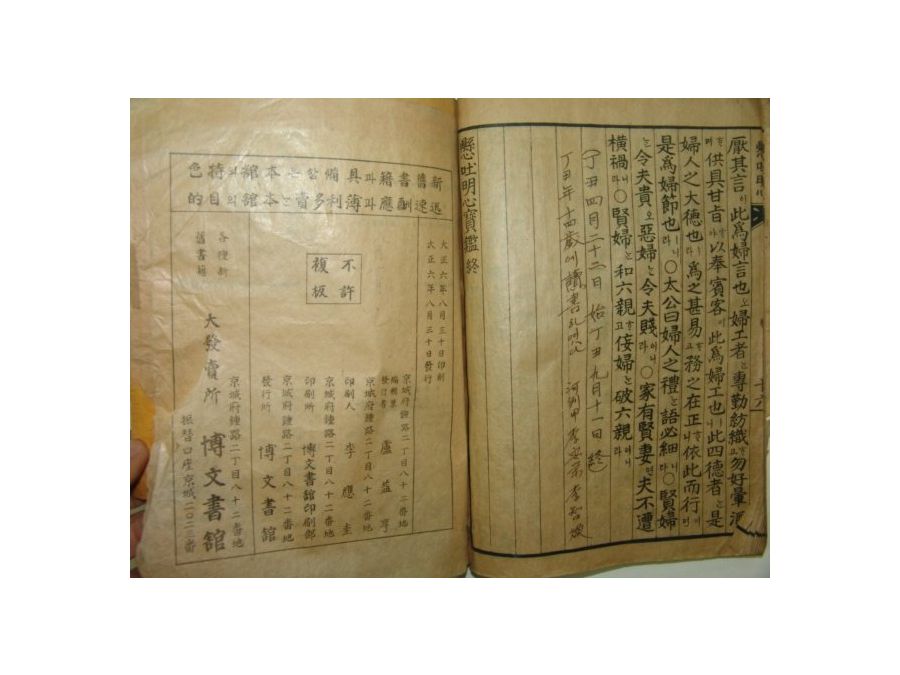 厭其言이此爲婦言也오婦工者는專勤紡織하고勿好暈酒
하며供具甘旨하야以奉賓客이此爲婦工也니此四德者는是
婦人之大德也라爲之甚易하고務之在正하니依此而行이면
是爲婦節也니라○太公曰婦人之禮는語必細니라○賢婦
는令夫貴오惡婦는令夫賤이니라○家有賢妻면夫不遭
橫禍니라○賢婦는和六親하고侫婦는破六親이니라
丁丑四月二十二日 始 丁丑九月十一日 終
丁丑年十四歲에讀書
懸吐明心寶鑑 終
新舊書籍과具備公는本舘의特色
迅速酬應과薄利多賣는本舘의目的
大正六年八月三十日印刷
大正六年八月三十日發行
不許
複板
京城府鍾路二丁目八十二番地
編輯兼發行者 盧益亨
京城府鍾路二丁目八十二番地
印刷人 李應圭
京城府鍾路二丁目八十二番地
印刷所 博文書舘印刷部
京城府鍾路二丁目八十二番地
發行所 博文書舘
各種新
舊書籍
大發賣所
京城府鍾路二丁目八十二番地
博文書舘
振替口座京城二〇二三番